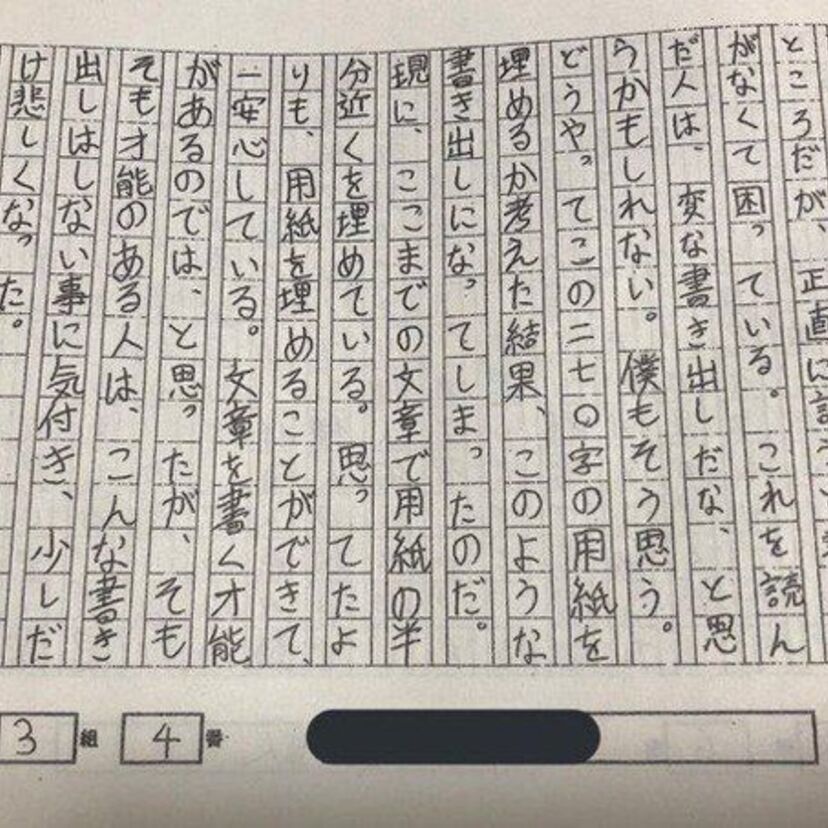 ところだが、正直に言うと
がなくて困っている。これを読ん
だ人は、変な書き出しだな、と思
うかもしれない。僕もそう思う。
どうやってこの二七〇字の用紙を
埋めるか考えた結果、このような
書き出しになってしまったのだ。
現に、ここまでの文章で用紙の半
分近くを埋めている。思ってたよ
りも、用紙を埋めることができて、
一安心している。文章を書く才能
があるのでは、と思ったが、そも
そも才能のある人は、こんな書き
出しはしない事に気付き、少しだ
け悲しくなった。
3組 4番